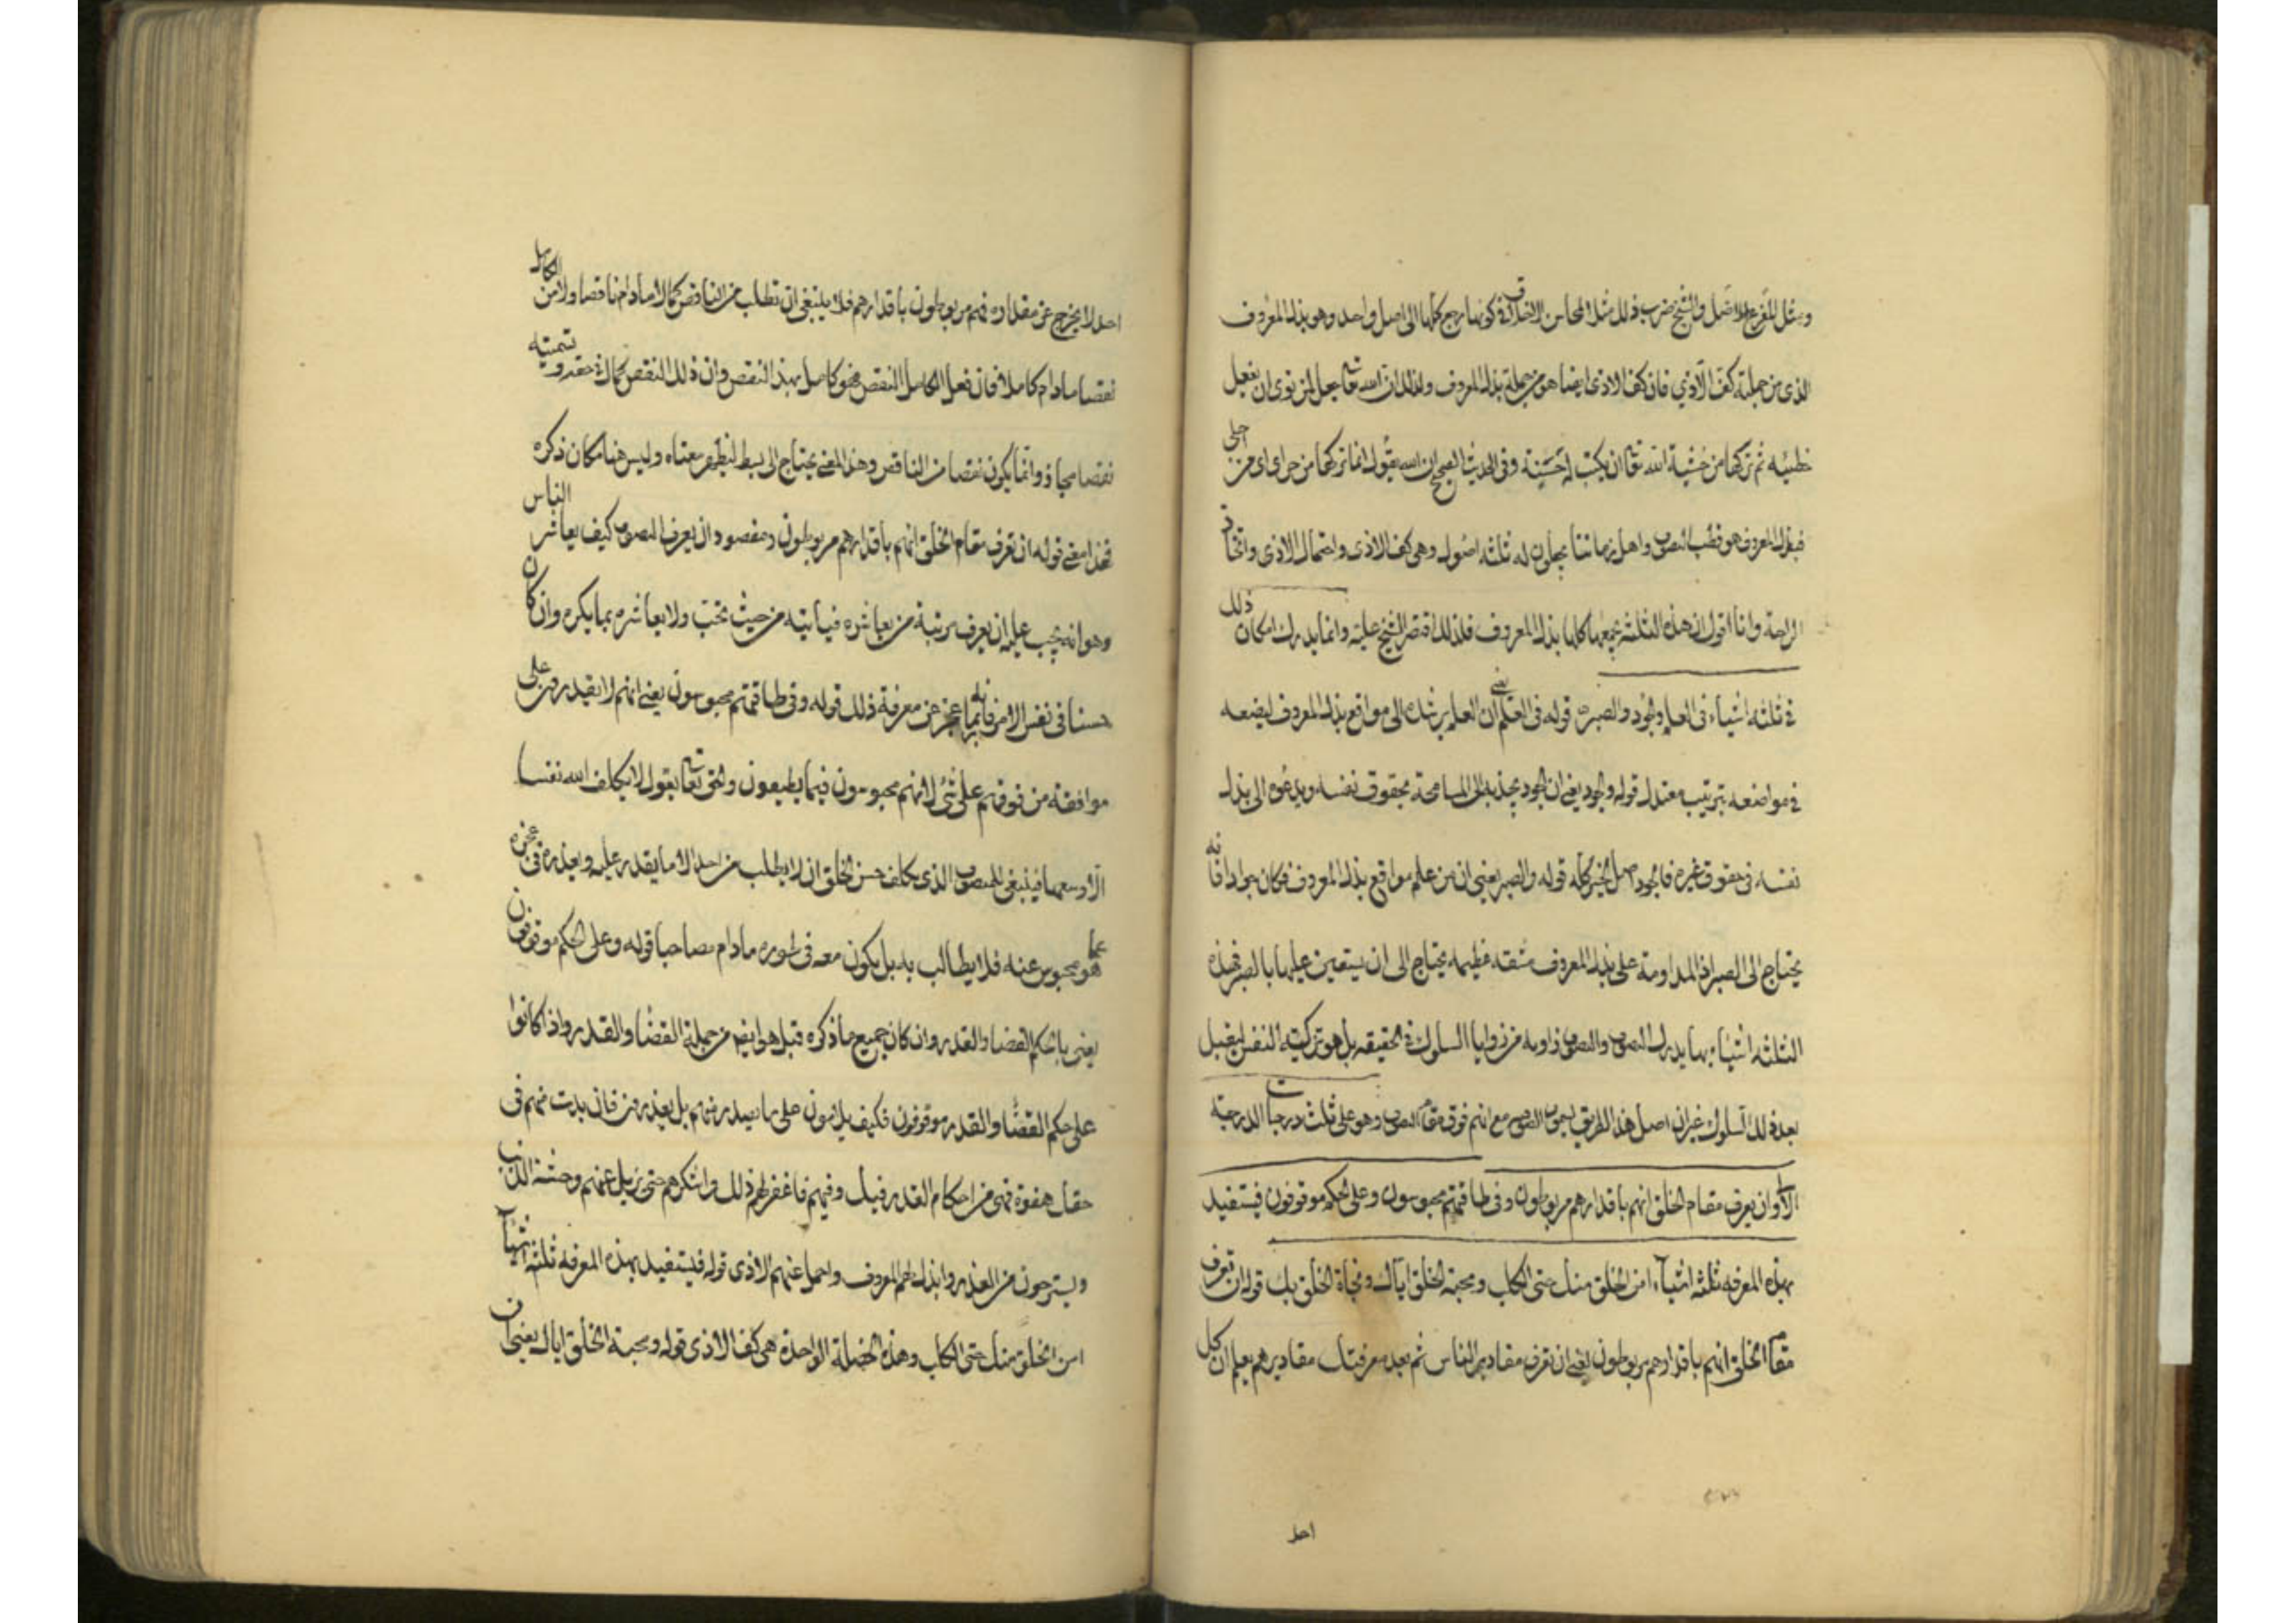 ومثل الفرع للاصل والشيخ ضرب ذلك مثلا لمحاسن الاخلاق في كونها يرجع كلها الى اصل واحد وهو بذل المعروف
الذى من جملته كف الاذي فان كف الاذى ايضا هو من جملة بذل المعروف ولذلك ان الله تعا جعل لمن نوى ان يفعل
خطيئه ثم تركها من خشية الله تعا ان يكتب له حسنة وفى الحديث الصحيح ان الله يقول انما تركها من جراى اى من اجلى
فبذل المعروف هو قطب التصوف واهل زماننا يجعلون له ثلثه اصول وهى كف الاذى واحتمال الاذى وايجاد
الراحة وانا اقول ان هذه الثلثه يجمعها كلها بذل المعروف فلذلك اقتصر الشيخ عليه وانما يدرك امكان ذلك
في ثلثه اشياء فى العلم والجود والصبر قوله فى العلم يعني ان العلم يرشده الى مواقع بذل المعروف ليضعه
في مواضعه بترتيب معتدل قوله والجود يعني ان الجود يجذبه الى المسامحة بحقوق نفسه ويدعوه الى بذل
نفسه فى حقوق غيره فالجود اصل الخير كله قوله والصبر يعنى ان من علم مواقع بذل المعروف فكان جوادا فانه
يحتاج الى الصبر اذ المداومة على بذل المعروف مشقه عظيمه يحتاج الى ان يستعين عليها بالصبر فهذه
الثلثه اشياء بها يدرك التصوف والتصوف زاويه من زوايا السلوك في الحقيقه بل هو تزكية النفس ليقبل
بعد ذلك السلوك غير ان اصل هذا الطريق يسمون الصوفيه مع انهم فوق مقام التصوف وهو على ثلث درجات الدرجة
الاولى ان يعرف مقام الخلق انهم باقدارهم مربوطون وفى طاقتهم محبوسون وعلى الحكم موقوفون فيستفيد
بهذه المعرفه ثلثه اشياء امن الخلق منك حتى الكلب ومحبة الخلق اياك ونجاة الخلق بك قوله ان تعرف
مقام الخلق انهم باقدارهم مربوطون يعني ان تعرف مقادير الناس ثم بعد معرفتك مقاديرهم يعلم ان كل
احد
احد لا يخرج عن مقداره فهم مربوطون باقدارهم فلا ينبغى ان تطلب من الناقص كمالا مادام ناقصا ولا من الكامل
نقصا مادام كاملا فان فعل الكامل النقص فهو كامل بهذا النقص وان ذلك النقص كمال في حقه وتسميته
نقصا مجاز وانما يكون نقصا من الناقص وهذا المعنى يحتاج الى بسط ليظهر معناه وليس هنا مكان ذكره
فهذا معنى قوله ان تعرف مقام الخلق انهم باقدارهم مربوطون ومقصوده ان يعرف المتصوف كيف يعاشر الناس
وهو انه يجب عليه ان يعرف مرتبة من يعاشره فياتيه من حيث يحب ولا يعاشره بما يكره وان كان
حسنا فى نفس الامر فانه ربما عجز عن معرفة ذلك قوله وفى طاقتهم محبوسون يعني انهم لا يقدرون على
موافقه من فوقهم على شئ لانهم محبوسون فيما يطيعون والحق تعا يقول لا يكلف الله نفسا
الا وسعها فينبغى للمتصوف الذى يكلف حسن الخلق ان لا يطلب من احد الا ما يقدر عليه ويعذره فى عجزه
عما هو محبوس عنه فلا يطالب به بل يكون معه فى طوره مادام مصاحبا قوله وعلى الحكم موقوفون
يعنى بالحكم القضا والقدر وان كان جميع ما ذكره قبل هو ايضا من جملة القضا والقدر واذا كانوا
على حكم القضا والقدر موقوفون فكيف يلامون على ما يصدر منهم بل يعذرون فان بدت منهم فى
حقك هفوة فهى من احكام القدر فيك وفيهم فاغفر لهم ذلك واشكرهم حتى تزيل عنهم وحشة الذنب
ويستريحون من العذر وابذل لهم المعروف واحمل عنهم الاذى قوله فيستفيد بهذه المعرفه ثلثه اشياء
امن الخلق منك حتى الكلب وهذه الخصلة الواحدة هى كف الاذى قوله ومحبة الخلق اياك يعنى ان